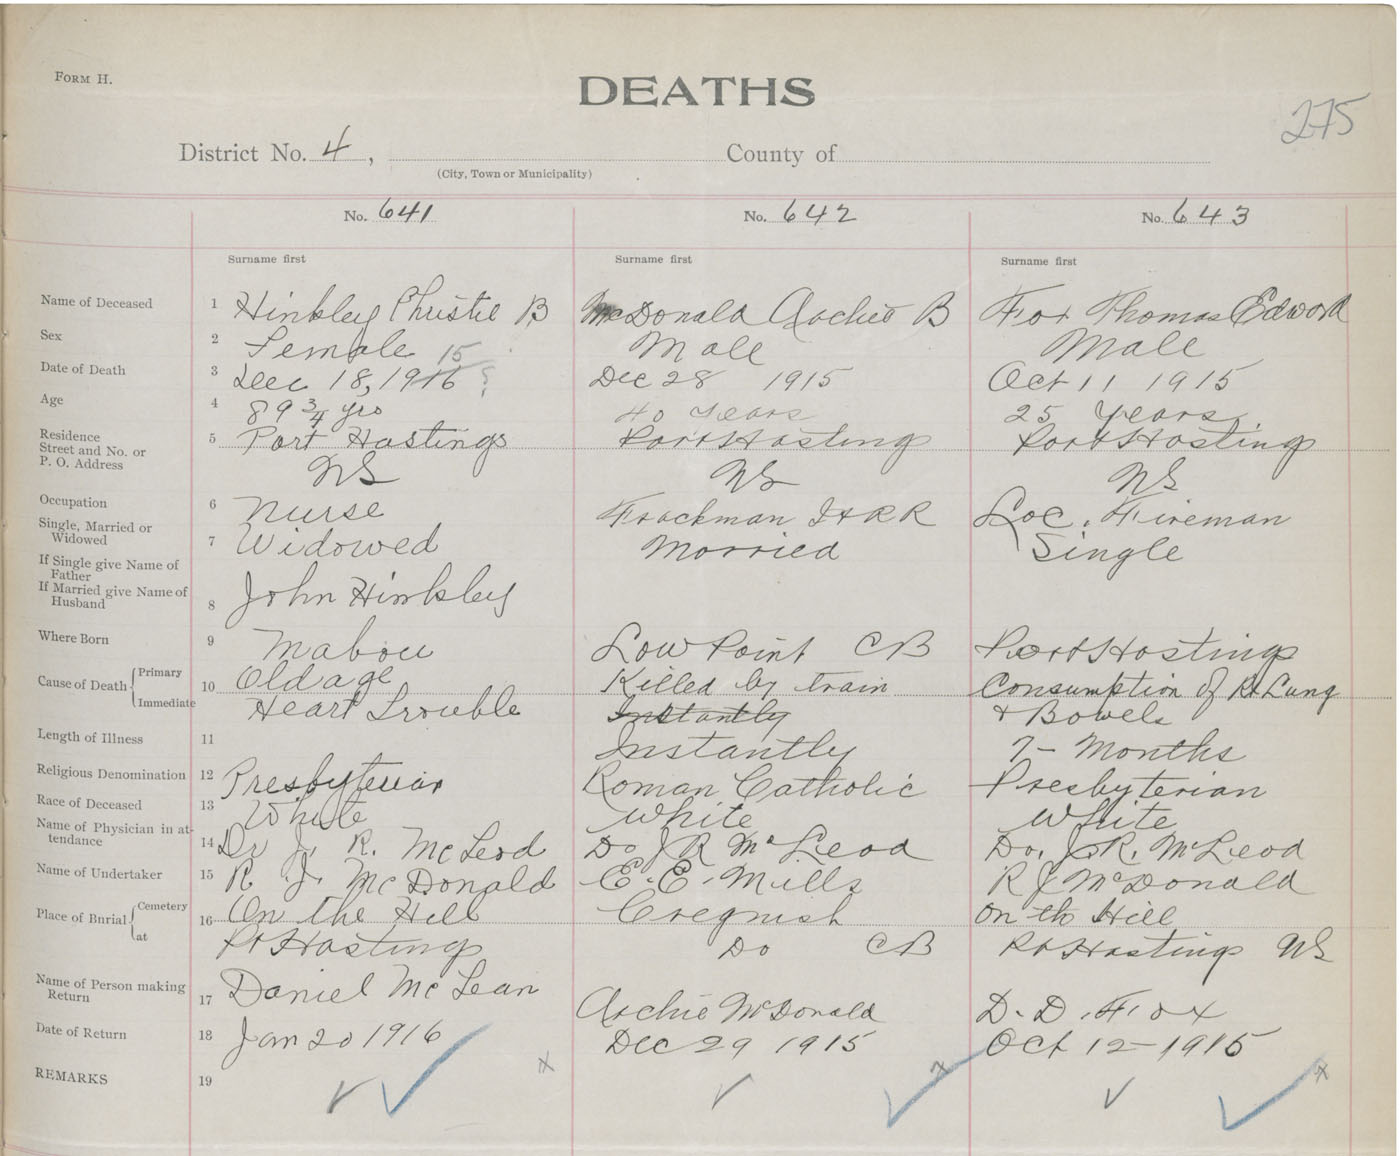 FORM H.
DEATHS
275
District No. 4, County of
(City, Town or Municipality)
No. 641 No. 642 No. 643
Surname first Surname first Surname first
Name of Deceased 1 Hinkley Christie B McDonald Archie B Fox Thomas Edword
Sex 2 Female Male Male
15
Date of Death 3 Dec 18, 1916 ? Dec 28 1915 Oct 11 1915
Age 4 89 3/4 yrs 40 years 25 years
Residence Street and No. or P. O. Address 5 Port Hastings Port Hasting Port Hasting
NS NS NS
Occupation 6 Nurse Trackman I & R R Loc. Fireman
Single, Married or Widowed 7 Widowed Married Single
If Single give Name of Father
If Married give Name of Husband 8 John Hinkley
Where Born 9 Mabou Low Point CB Port Hastings
Cause of Death Primary 10 Old age Killed by train Consumption of Rt Lung
Immediate Heart Trouble Instantly & Bowels
Length of Illness 11 Instantly 7 - Months
Religious Denomination 12 Presbyterian Roman Catholic Presbyterian
Race of Deceased 13 White White White
Name of Physician in attendance 14 Dr J. R. McLeod Dr J R McLeod Dr. J. R. McLeod
Name of Undertaker 15 R. J. McDonald E. E. Mills R J McDonald
Place of Burial Cemetery 16 On the Hill Cregnish on th Hill
at Pt Hasting Do CB Pt Hasting NS
Name of Person making Return 17 Daniel McLean Archie McDonald D. D. Fox
Date of Return 18 Jan 20 1916 Dec 29 1915 Oct 12 - 1915
REMARKS 19
x x x